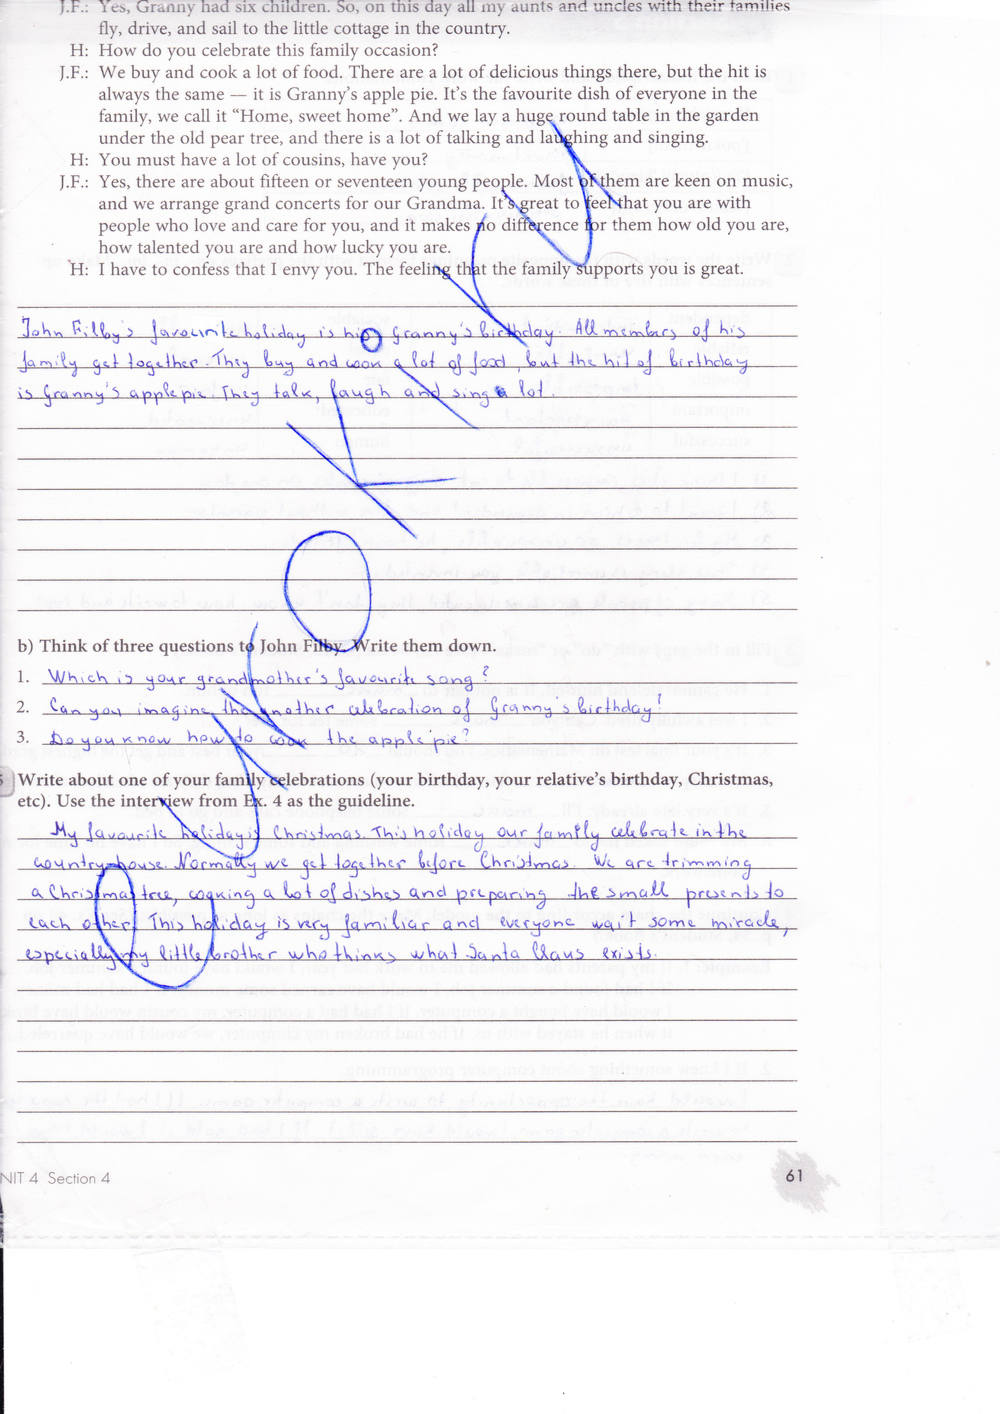 J.F.: Yes, Granny had six children. So, on this day all my aunts and uncles with their families
fly, drive, and sail to the little cottage in the country.
H: How do you celebrate this family occasion?
J.F.: We buy and cook a lot of food. There are a lot of delicious things there, but the hit is
always the same — it is Granny's apple pie. It's the favourite dish of everyone in the
family, we call it “Home, sweet home”. And we lay a huge round table in the garden
under the old pear tree, and there is a lot of talking and laughing and singing.
H: You must have a lot of cousins, have you?
J.F.: Yes, there are about fifteen or seventeen young people. Most of them are keen on music,
and we arrange grand concerts for our Grandma. It's great to feel that you are with
people who love and care for you, and it makes no difference for them how old you are,
how talented you are and how lucky you are.
H: I have to confess that I envy you. The feeling that the family supports you is great.
John Filby's favourite holiday is his Granny's birthday. All members of his
family get together. They buy and cook a lot of food, but the hit of birthday
is Granny's apple pie. They talk, laugh and sing a lot.
b) Think of three questions to John Filby. Write them down.
1. Which is your grandmother's favourite song?
2. Can you imagine the another celebration of Granny's birthday?
3. Do you know how to cook the apple pie?
5 Write about one of your family celebrations (your birthday, your relative's birthday, Christmas,
etc). Use the interview from Ex. 4 as the guideline.
My favourite holiday is Christmas. This holiday our family celebrate in the
country-house. Normally we get together before Christmas. We are trimming
a Christmas tree, cooking a lot of dishes and preparing the small presents to
each other. This holiday is very familiar and everyone wait some miracle,
especially my little brother who thinks what Santa Claus exists.
NIT 4 Section 4
61